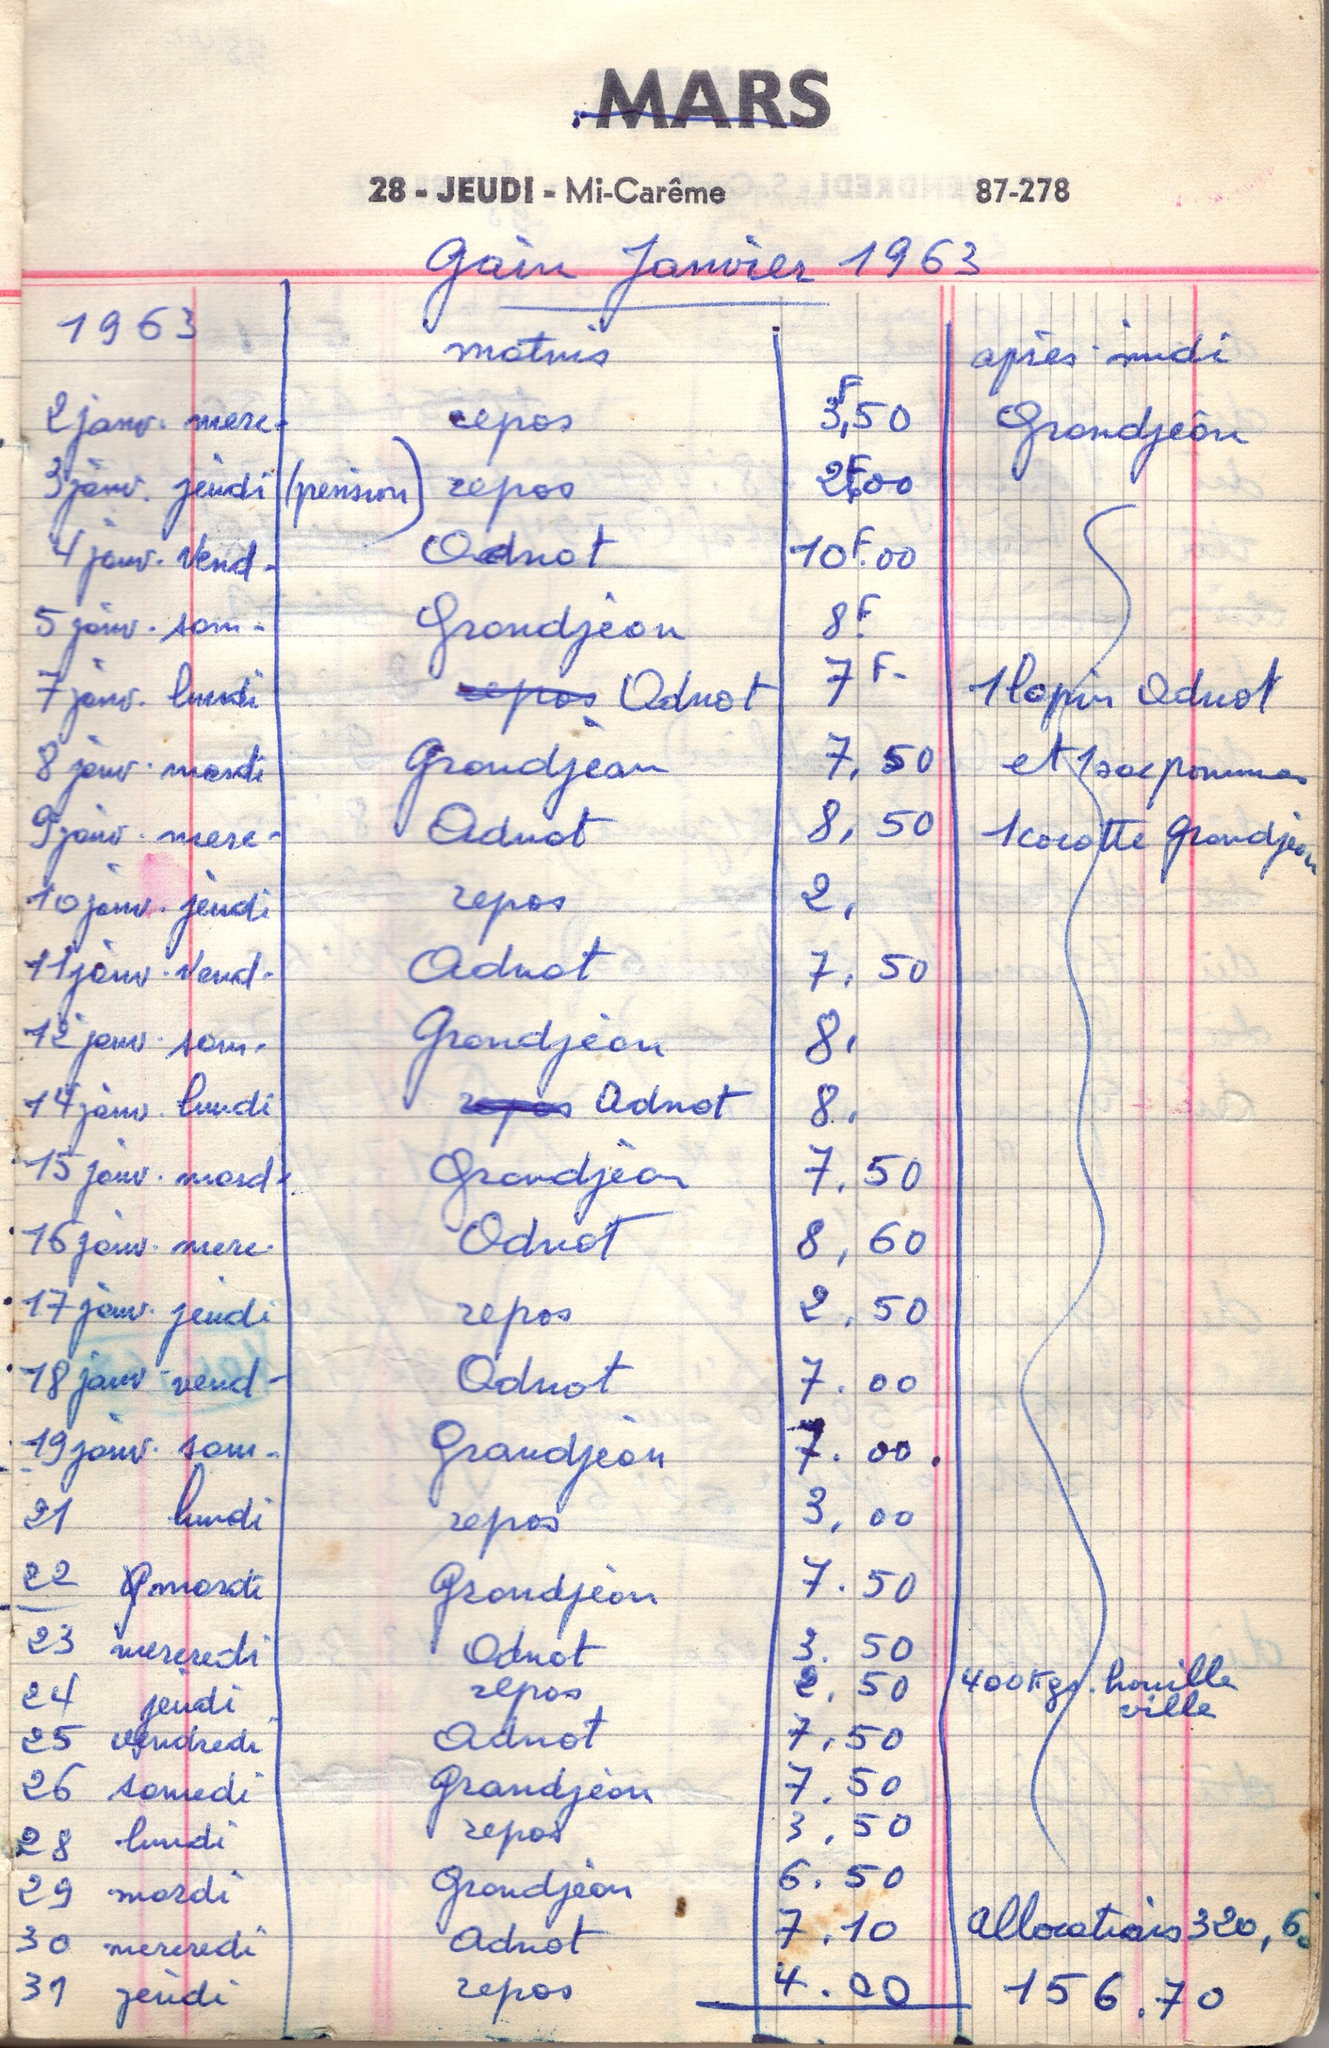 MARS
28 - JEUDI - Mi-Carême 87-278
Gain Janvier 1963
1963 matins après-midi
2 janv. merc- repos 3F,50 Grandjean
3 janv. jeudi (pension) repos 2F,00
4 janv. Vend- Adnot 10F.00
5 janv. sam- Grandjean 8F.
7 janv. lundi repos Adnot 7F- 1 lapin Adnot
8 janv. mardi Grandjean 7,50 et 1 sac pommes
9 janv. merc- Adnot 8,50 1 cocotte Grandjean
10 janv. jeudi repos 2,
11 janv. Vend- Adnot 7,50
12 janv. sam. Grandjean 8,
14 janv. lundi repos Adnot 8,
15 janv. mard. Grandjean 7,50
16 janv. merc. Adnot 8,60
17 janv. jeudi repos 2,50
18 janv. vend- Adnot 7.00
19 janv. sam- Grandjean 7.00.
21 lundi repos 3,00
22 mardi Grandjean 7.50
23 mercredi Adnot 3.50
24 jeudi repos 2,50 400 Kgs. houille
ville
25 vendredi Adnot 7,50
26 samedi Grandjean 7.50
28 lundi repos 3,50
29 mardi Grandjean 6.50
30 mercredi Adnot 7.10 allocations 320,6
31 jeudi repos 4.00 156.70